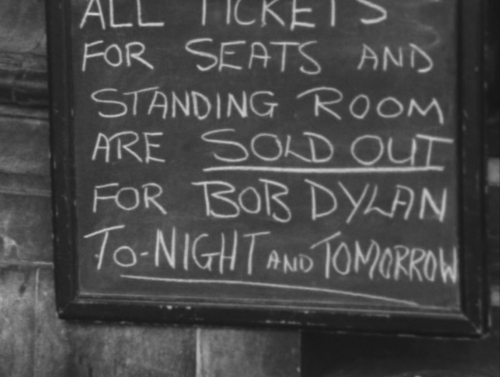 ALL TICKETS
FOR SEATS AND
STANDING ROOM
ARE SOLD OUT
FOR BOB DYLAN
TO-NIGHT AND TOMORROW